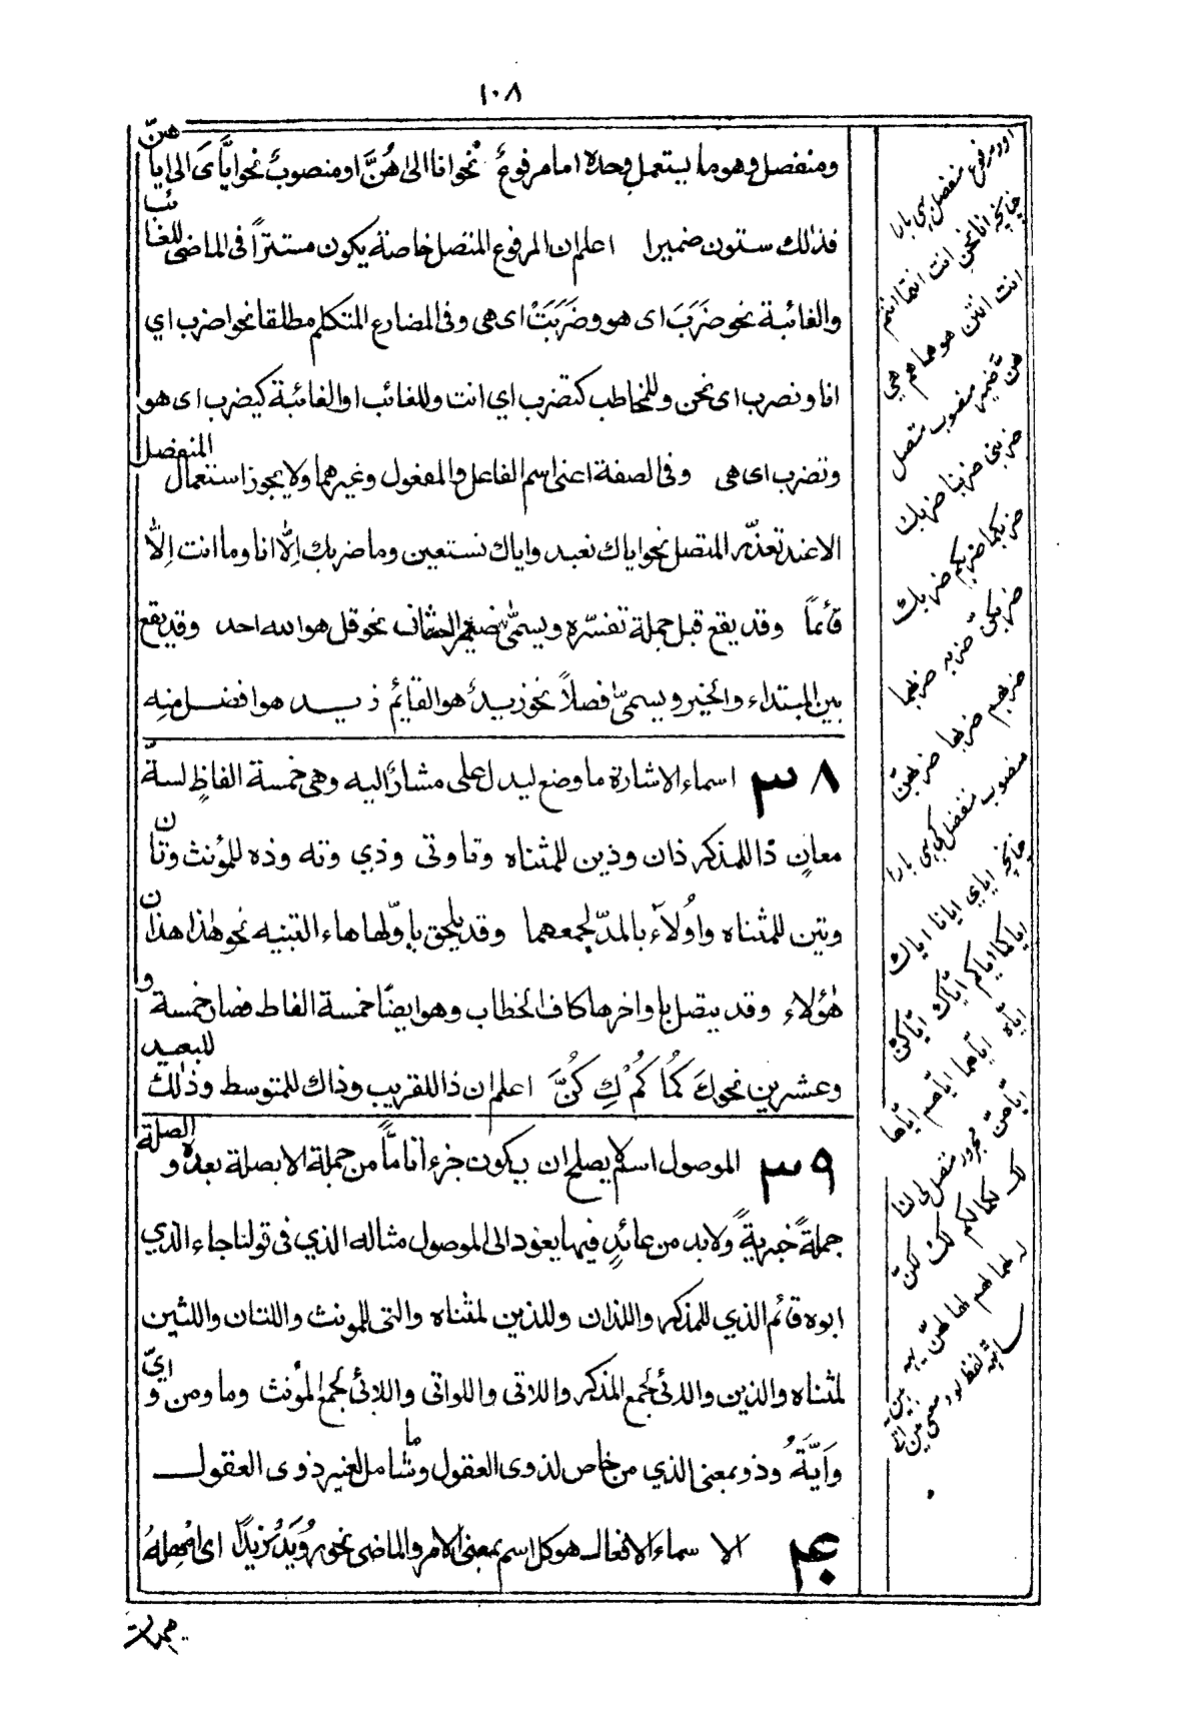 ١٠٨
ومنفصل وهو ما يستعمل وحده اما مرفوعٌ نحو انا الىٰ هُنَّ او منصوبٌ نحو ايَّاىَ الى ايا هنّ
فذٰلك ستون ضميرا اعلم ان المرفوع المتصل خاصة يكون مستتراً فى الماضى للغائب
والغائبة نحو ضَرَبَ اى هو وضَرَبَتْ اى هى وفى المضارع المتكلم مطلقا نحو اضرب اي
انا ونضرب اى نحن وللمخاطب كتضرب اي انت وللغائب او الغائبة كيضرب اى هو
وتضرب اى هى وفى الصفة اعنى اسم الفاعل والمفعول وغيرهما ولا يجوز استعمال المنفصل
الا عند تعذّر المتصل نحو اياك نعبد واياك نستعين وما ضربك اِلّا انا وما انت اِلّا
قائماً وقد يقع قبل جملة تفسّره ويسمّٰى ضمير الشان نحو قل هو الله احد وقد يقع
بين المبتداء والخبر ويسمىّ فصلاً نحو زيدٌ هو القائم زيد هو افضل منه
٣٨ اسماء الاشارة ما وضع ليدل على مشارٌ اليه وهى خمسة الفاظٍ لستّة
معانٍ ذا للمذكر ذان وذين للمثناه وتا وتى وذي وته وذه للمؤنث وتان
وتين للمثناه واُولآء بالمدّ لجمعهما وقد يلحق باوّلها هاء التبنيه نحو هٰذا هذان
هٰؤلاء وقد يتصل باواخرها كاف الخطاب وهو ايضًا خمسة الفاط فصار خمسة و
وعشرين نحو كَ كُمَا كُمْ كِ كُنَّ اعلم ان ذا للقريب وذاك للمتوسط وذٰلك للبعيد
٣٩ الموصول اسم لا يصلح ان يكون جزء اتامًّا من جملة الا بصلة بعده و الصلة
جملةً خبريةً ولا بد من عائدٍ فيها يعود الى الموصول مثاله الذي فى قولنا جاء الذي
ابوه قائم الذي للمذكر واللذان وللذين لمثناه والتى للمونث واللتان واللتين
لمثناه والذين واللائى لجمع المذكر واللاتى واللواتى واللائى لجمع المؤنث وما ومن و ايّ
واَيَّةُ وذو بمعنى الذي من خاص لذوى العقول وما شامل لغير ذوى العقول
٤٠ الا سماء الافعال هو كل اسم بمعنى الامر والماضى نحو رُوَيَدْ زيدًا اى اَمْهِلهُ
اور مرفوع منفصل بي بارا
چنانچه انا نحن انت انتما انتم
انت انتن هو هما هم هي
هن ضمير منصوب متصل
ضربنى ضربنا ضربك
ضربكما ضربكم ضربك
ضربكنّ ضربه ضربهما
ضربهم ضربها ضربهنّ
منصوب منفصل بي بارا
چنانچه اياي ايانا اياك
اياكما اياكم ايّاك ايّاكنّ
ايّاه ايّاهما ايّاهم ايّاها
ايّاهنّ مجرور متصل لى لنا
لك لكما لكم لك لكنّ
له لهما لهم لها لهنّ